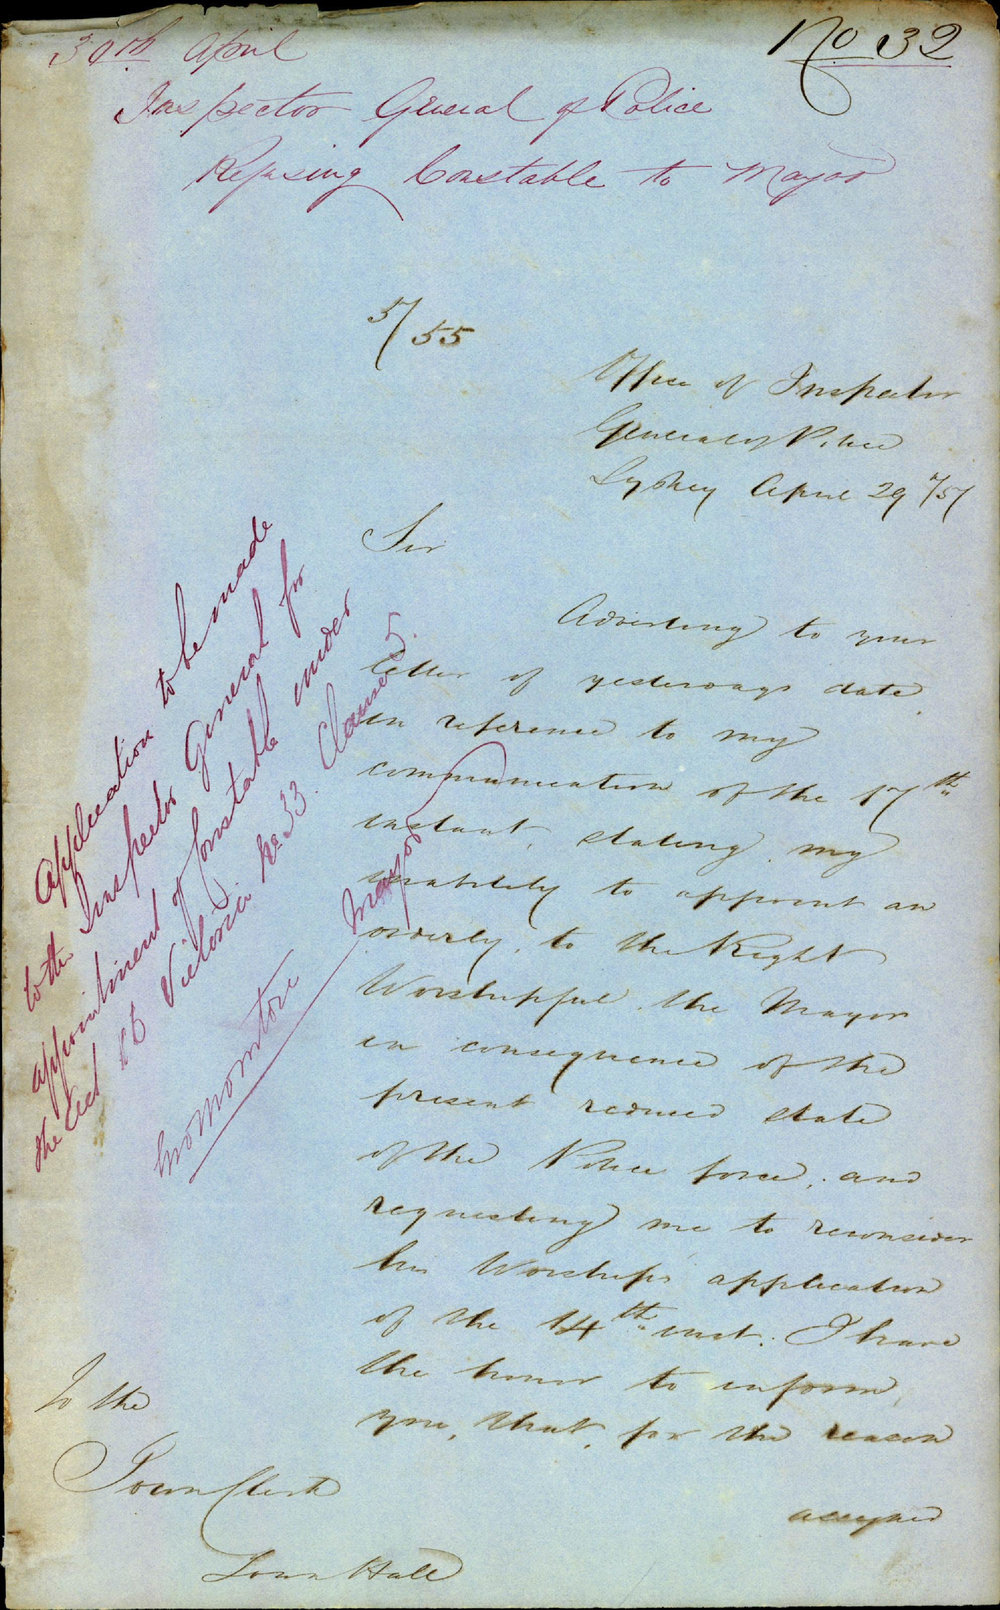 30th April
No 32
Inspector General of Police
Refusing Constable to Mayor
57/55
Office of Inspector
General of Police
Sydney April 29 /57
Sir
Adverting to your
letter of yesterdays date
in reference to my
communication of the 17th
instant, stating my
inability to appoint an
orderly, to the Right
Worshipful, the Mayor
in consequence of the
present reduced state
of the Police force, and
requesting me to reconsider
his Worship's application
of the 14th inst: I have
the honor to inform
you, that, for the reason
assigned
To the
Town Clerk
Town Hall
Application to be made
to the Inspector General for
appointment of Constable under
the Act Victoria No 33. Clause 5.
Mayor